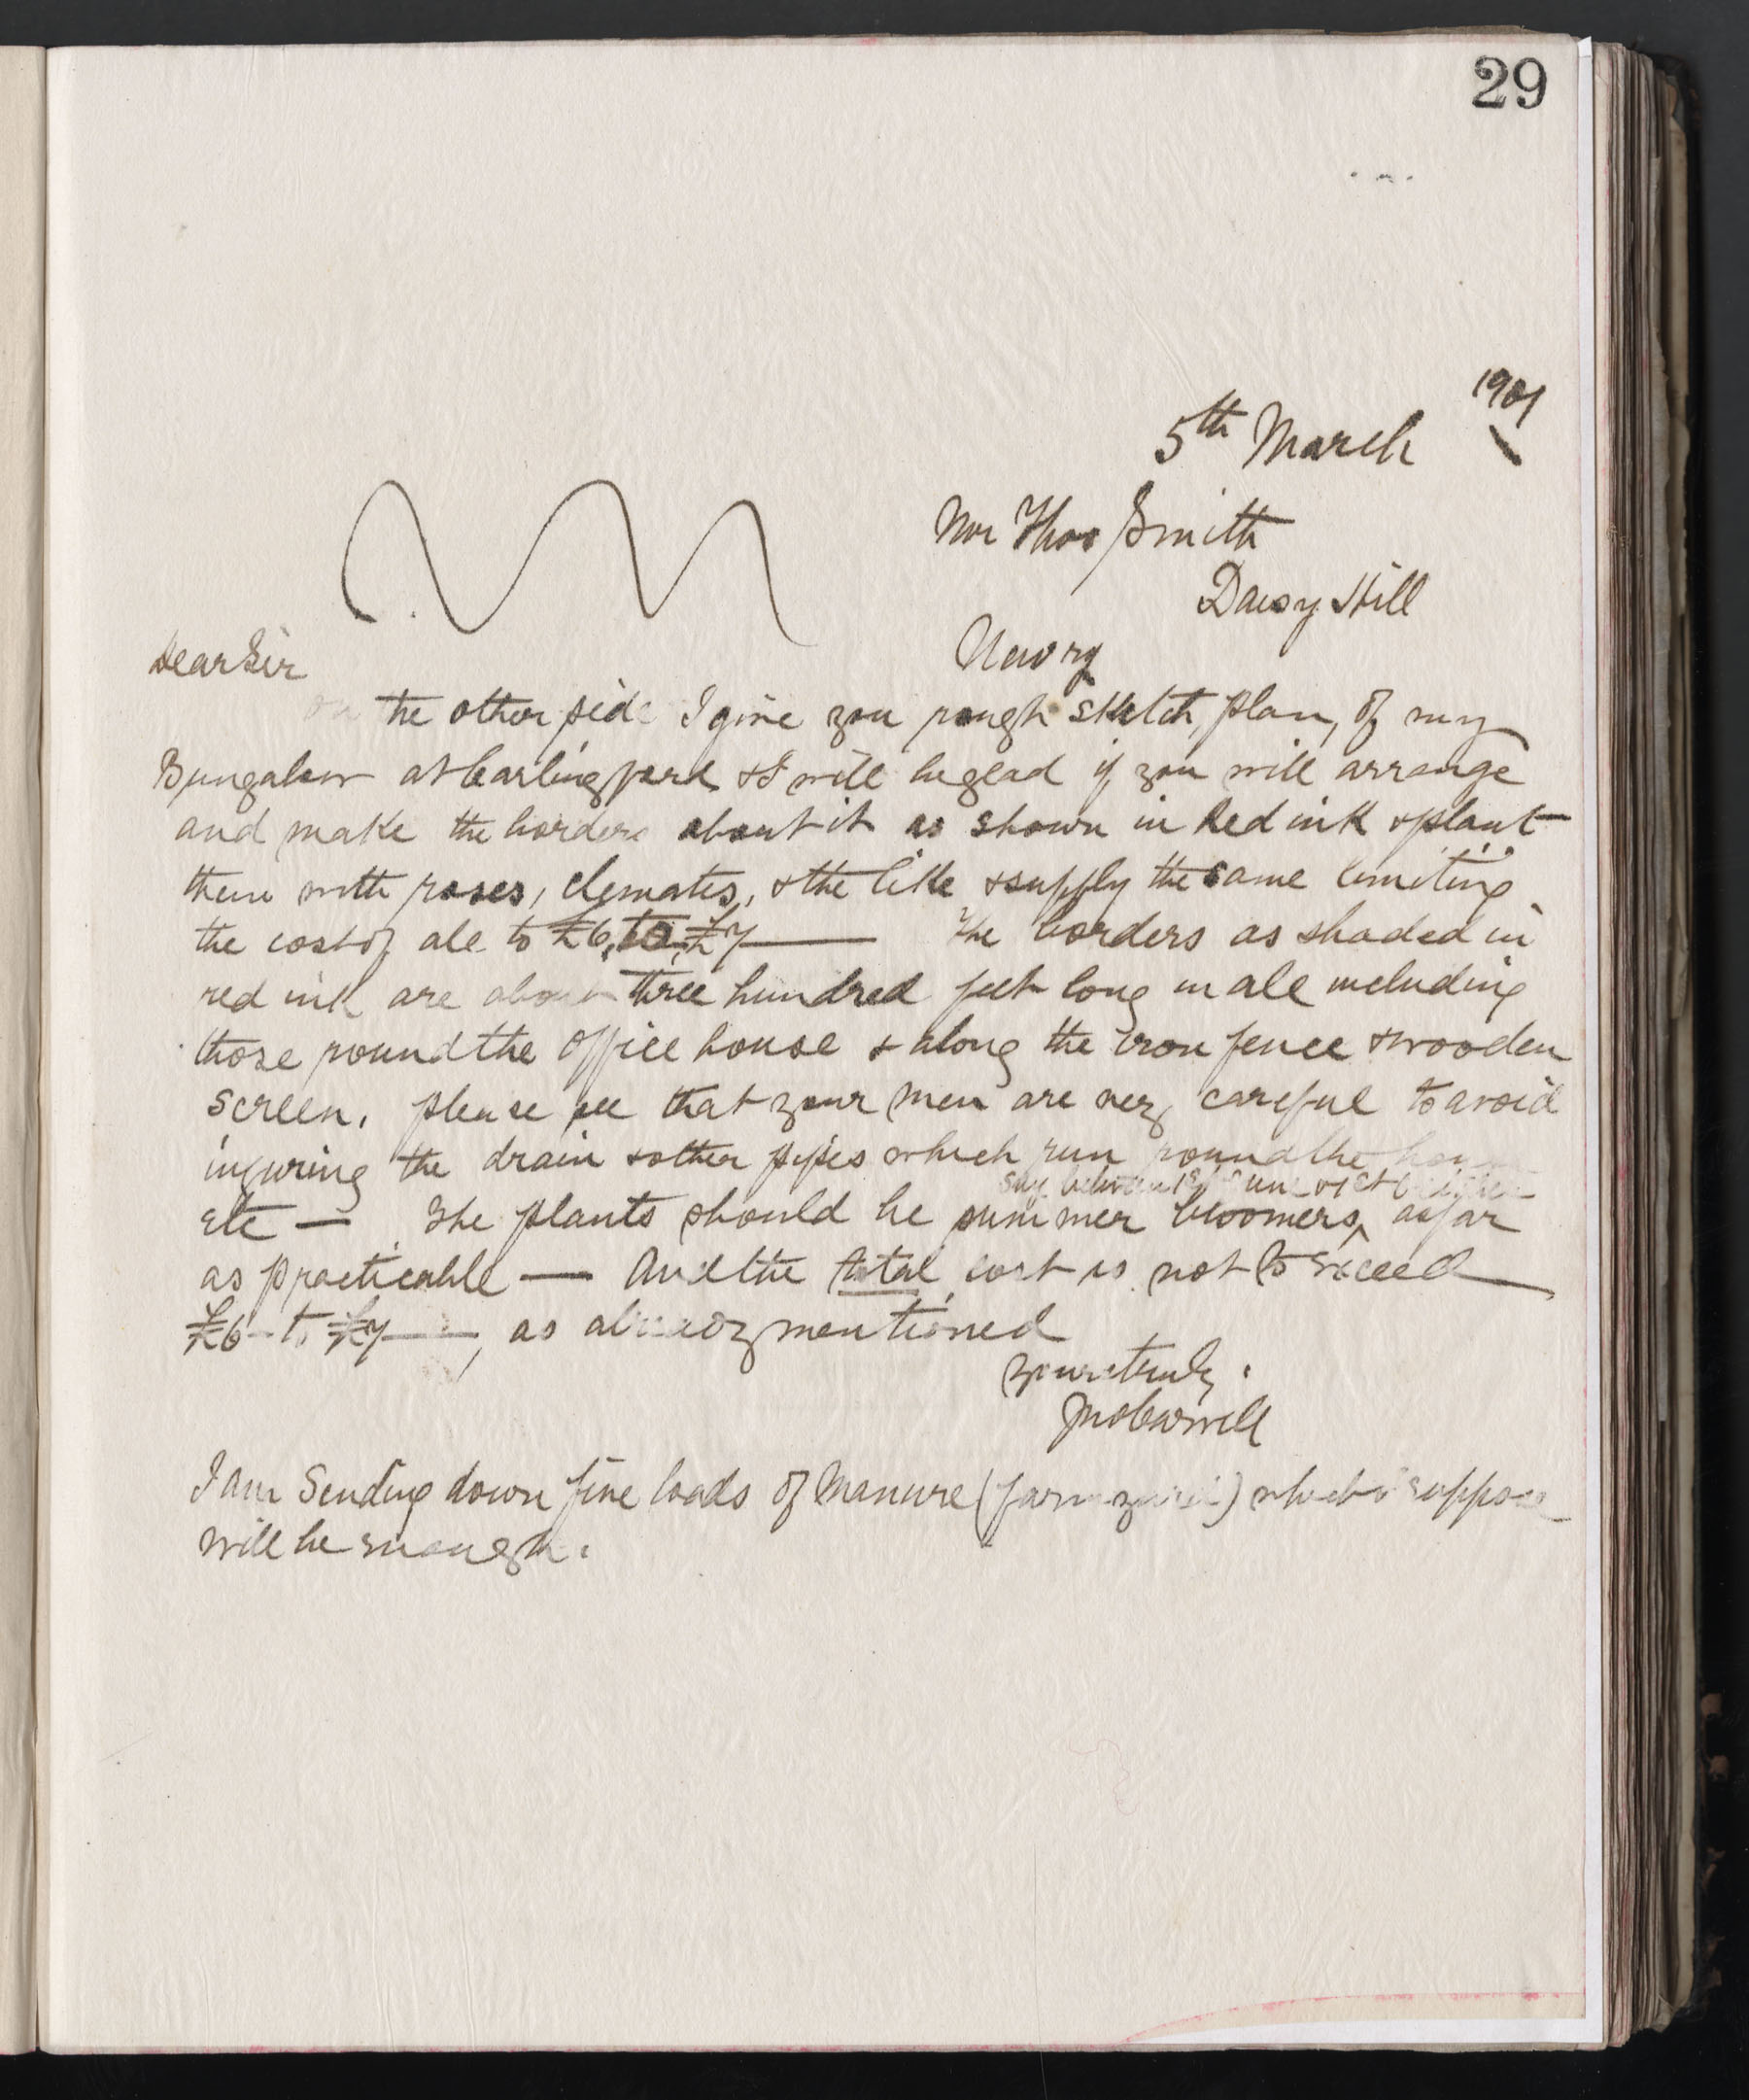 29
1901
5th March
Mr Thos Smith
Daisy Hill
Newry
Dear Sir
on the other side I give you rough sketch, plan, of my
Bungalow at Carlingford & I will be glad if you will arrange
and make the borders about it as shown in Red ink & plant
them with roses, clematis, & the like & supply the same limiting
the cost of all to £6 to £7 — The borders as shaded in
red ink are about three hundred feet long in all including
those round the office house & along the iron fence & wooden
screen. please see that your men are very careful to avoid
injuring the drain & other pipes which run round the house
say between 1st June & 1st October
etc — The plants should be summer bloomers, as far
as practicable — And the total cost is not to exceed
£6 - to £7 —, as already mentioned
yours truly.
I am Sending down five loads of Manure (farm yard) which I suppose
will be enough.